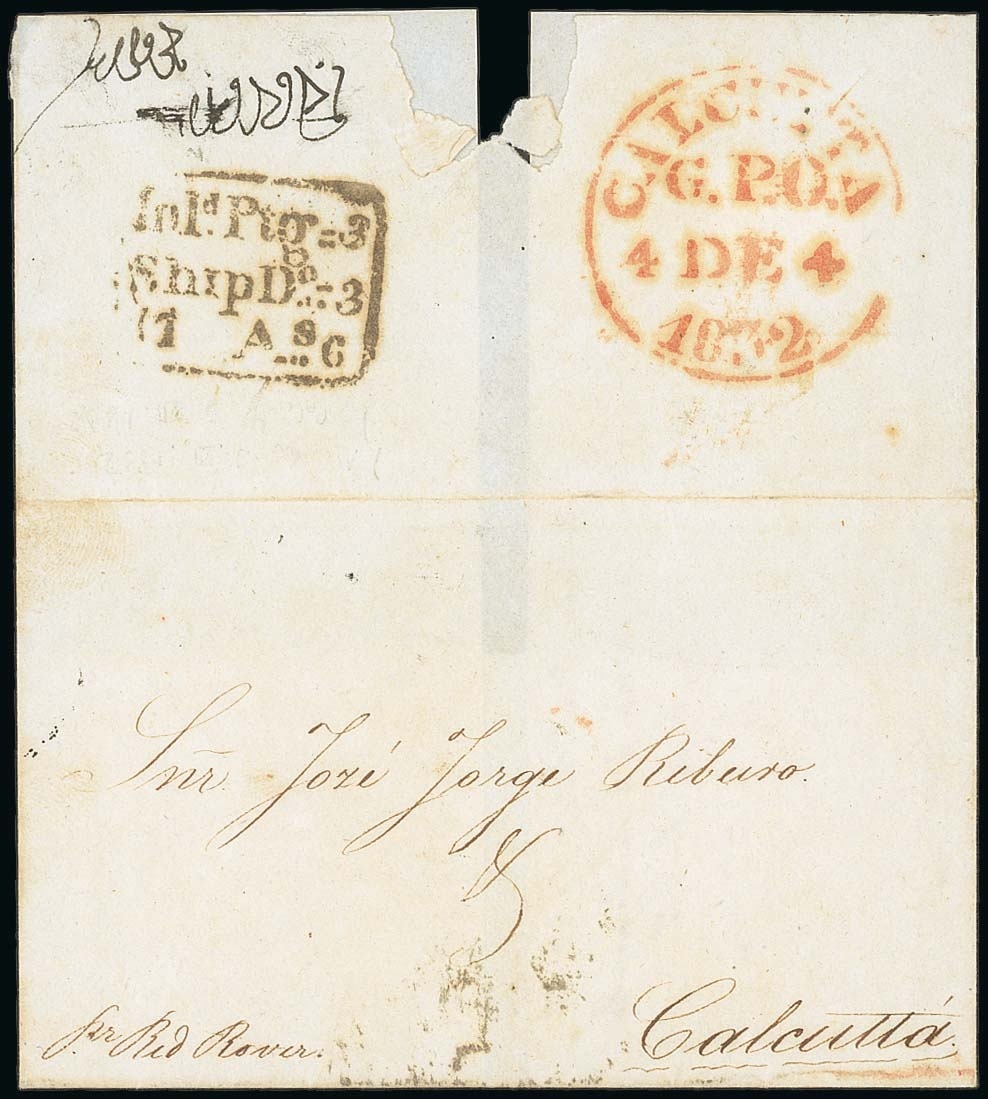 Inld. Ptg.-3
Ship Do.-3
As 6
CALCUTTA
G. P. O.
4 DE 4
1832
Snr. José Jorge Ribeiro.
pr Red Rover.
Calcuttá.